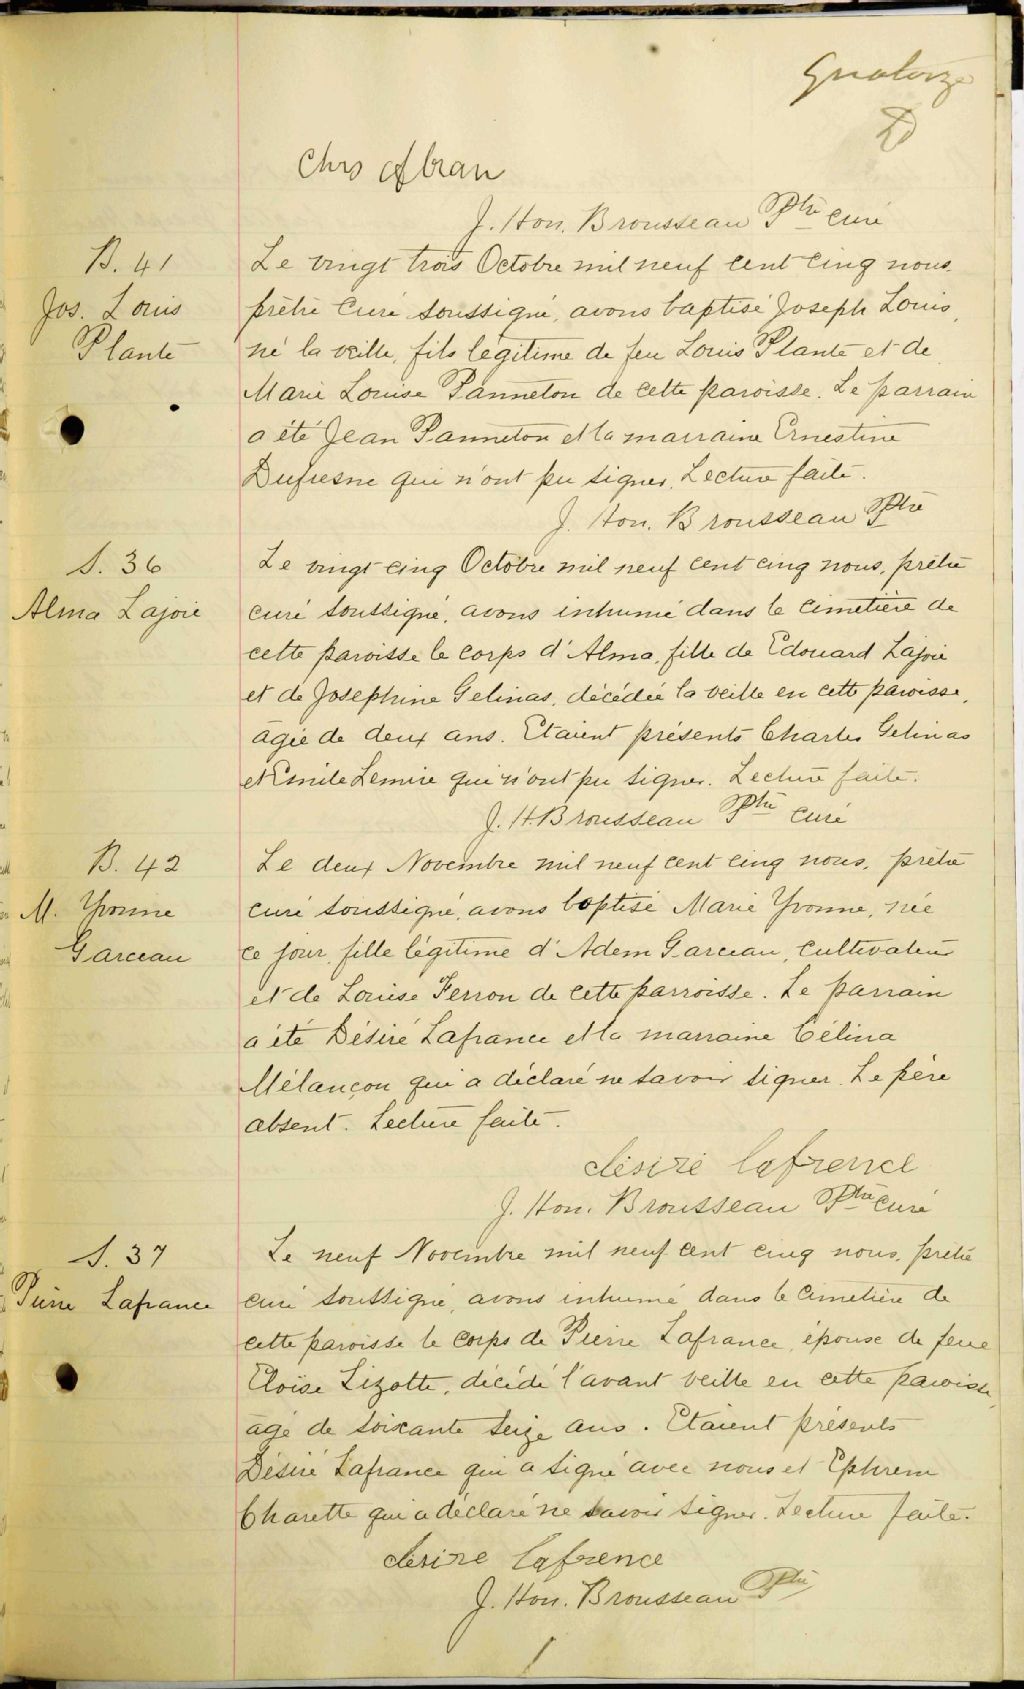 Quatorze
Chrs
J. Hon. Brousseau Ptre curé
B. 41
Jos. Louis
Plante
Le vingt trois Octobre mil neuf cent cinq nous
prêtre curé soussigné, avons baptisé Joseph Louis,
né la veille, fils légitime de feu Louis Plante et de
Marie Louise Panneton de cette paroisse. Le parrain
a été Jean Panneton et la marraine Ernestine
Dufresne qui n'ont pu signer. Lecture faite.
J. Hon. Brousseau Ptre
S. 36
Alma Lajoie
Le vingt cinq Octobre mil neuf cent cinq nous, prêtre
curé soussigné, avons inhumé dans le cimetière de
cette paroisse le corps d'Alma, fille de Edouard Lajoie
et de Josephine Gelinas, décédée la veille en cette paroisse,
âgée de deux ans. Etaient présents Charles Gelinas
et Emile Lemire qui n'ont pu signer. Lecture faite.
J. H. Brousseau Ptre curé
B. 42
M. Yvonne
Garceau
Le deux Novembre mil neuf cent cinq nous, prêtre
curé soussigné, avons baptisé Marie Yvonne, née
ce jour, fille légitime d'Adem Garceau, cultivateur
et de Louise Ferron de cette parroisse. Le parrain
a été Désiré Lafrance et la marraine Célina
Mélançon qui a déclaré ne savoir signer. Le père
absent. Lecture faite.
désiré lafrence
J. Hon. Brousseau Ptre curé
S. 37
Pierre Lafrance
Le neuf Novembre mil neuf cent cinq nous, prêtre
curé soussigné, avons inhumé dans le cimetière de
cette paroisse le corps de Pierre Lafrance, époux de feue
Eloise Lizotte, décédé l'avant veille en cette paroisse,
âgé de soixante seize ans. Etaient présents
Désiré Lafrance qui a signé avec nous et Ephrem
Charette qui a déclaré ne savoir signer. Lecture faite.
désire lafrence
J. Hon. Brousseau Ptre